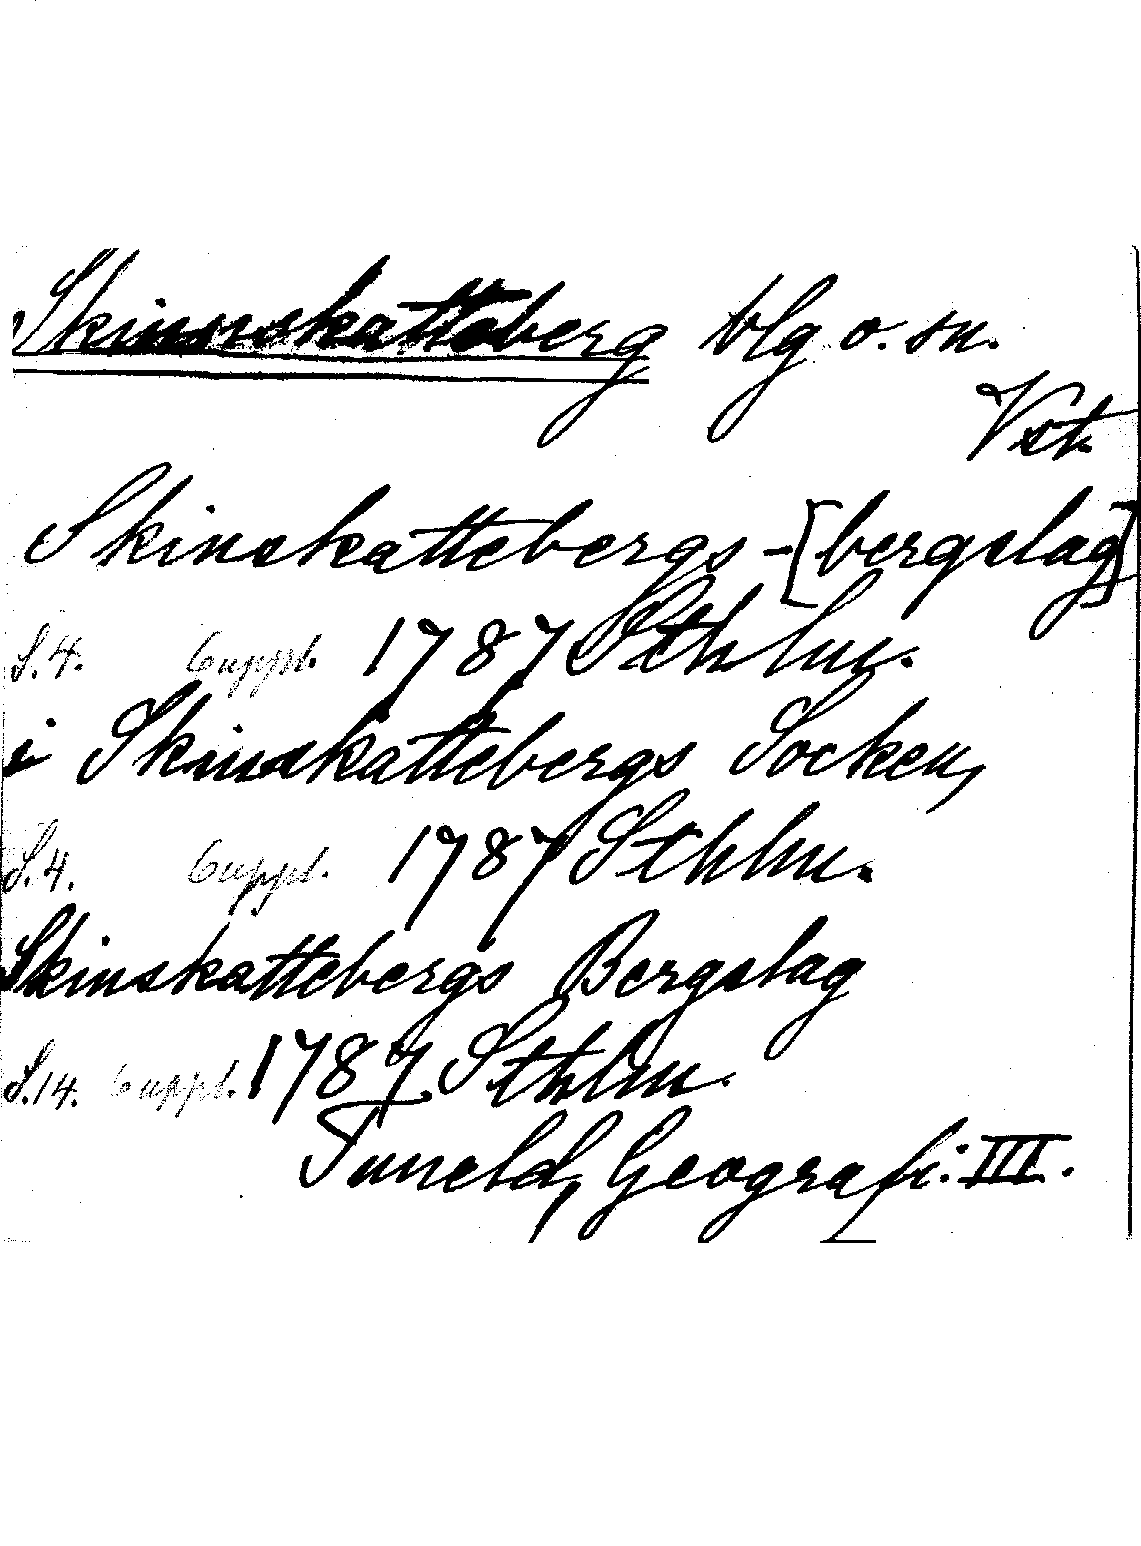 Skinnskatteberg blg o. sn.
Vst.
Skinskattebergs -[bergslag]
S. 4. 6 uppl. 1787 Sthlm.
i Skinskattebergs Socken,
S. 4. 6 uppl. 1787 Sthlm.
Skinskattebergs Bergslag
S. 14. 6 uppl. 1787. Sthlm.
Tuneld, Geografi: III.